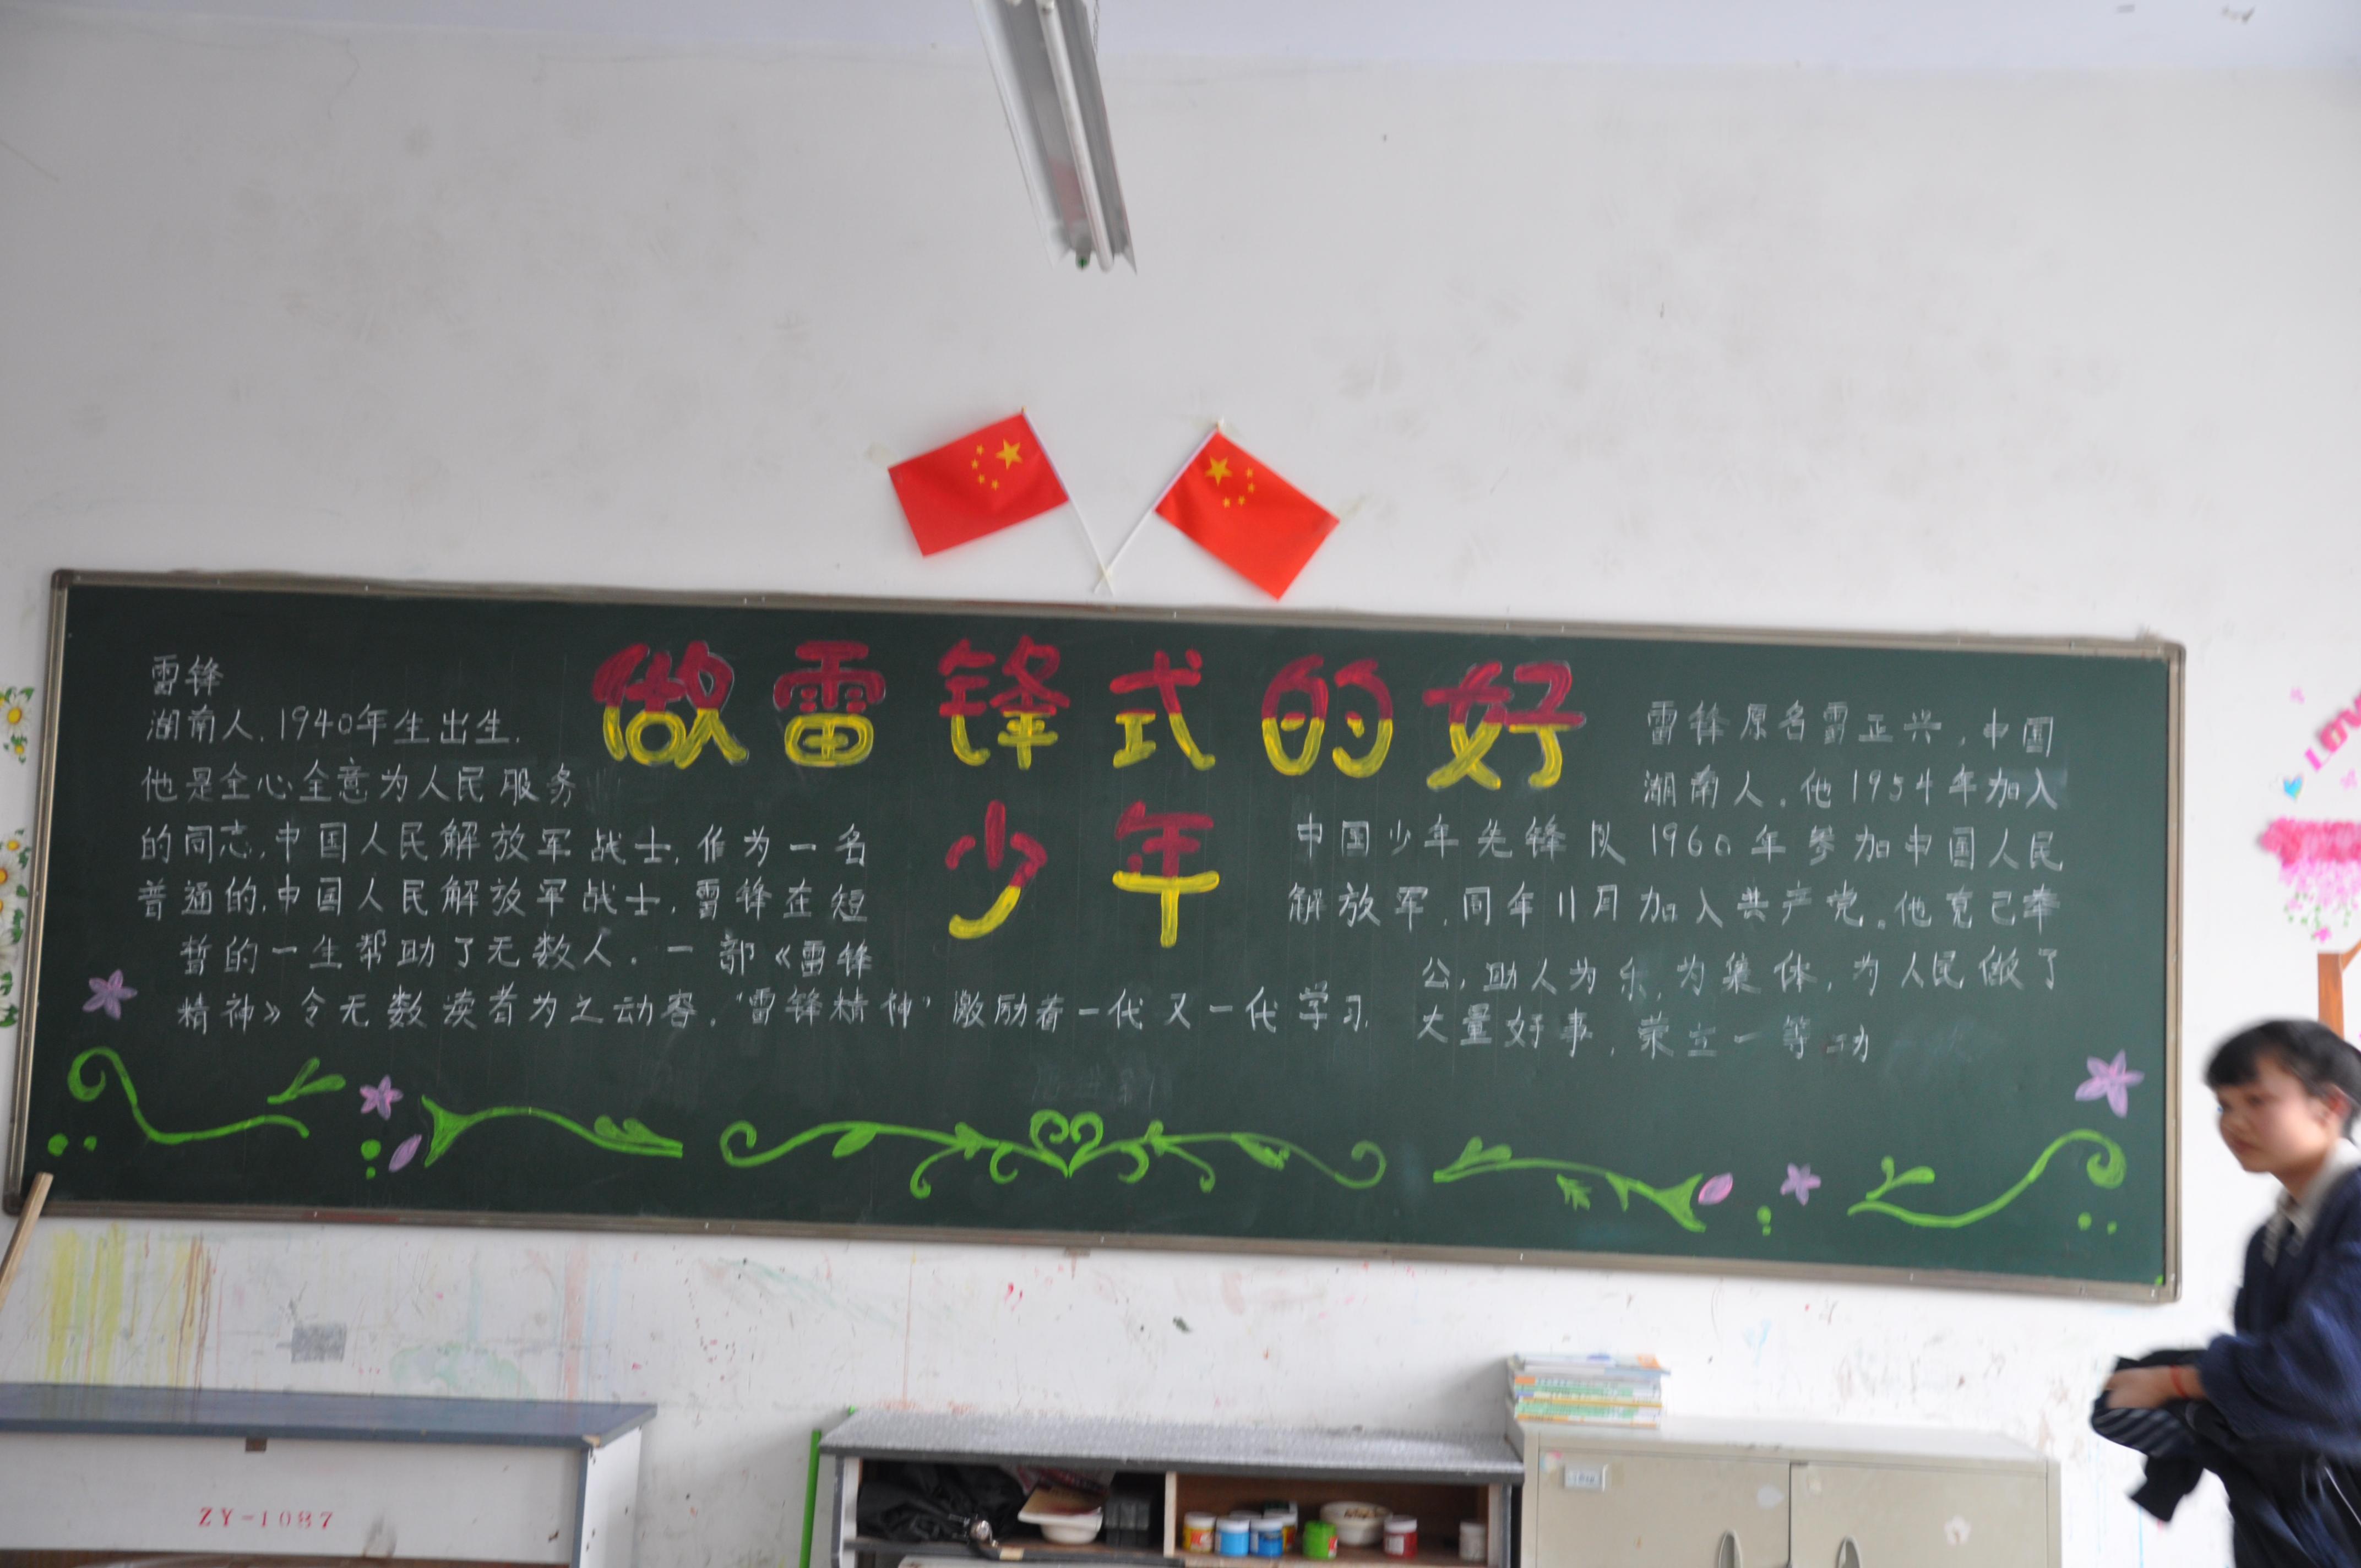 做雷锋式的好
少年
雷锋
湖南人.1940年生出生.
他是全心全意为人民服务
的同志,中国人民解放军战士,作为一名
普通的,中国人民解放军战士,雷锋在短
暂的一生帮助了无数人.一部《雷锋
精神》令无数读者为之动容.“雷锋精神”激励着一代又一代学习.
雷锋原名雷正兴,中国
湖南人.他1954年加入
中国少年先锋队1960年参加中国人民
解放军,同年11月加入共产党。他克己奉
公,助人为乐,为集体,为人民做了
大量好事,荣立一等功
LOV
ZY-1087